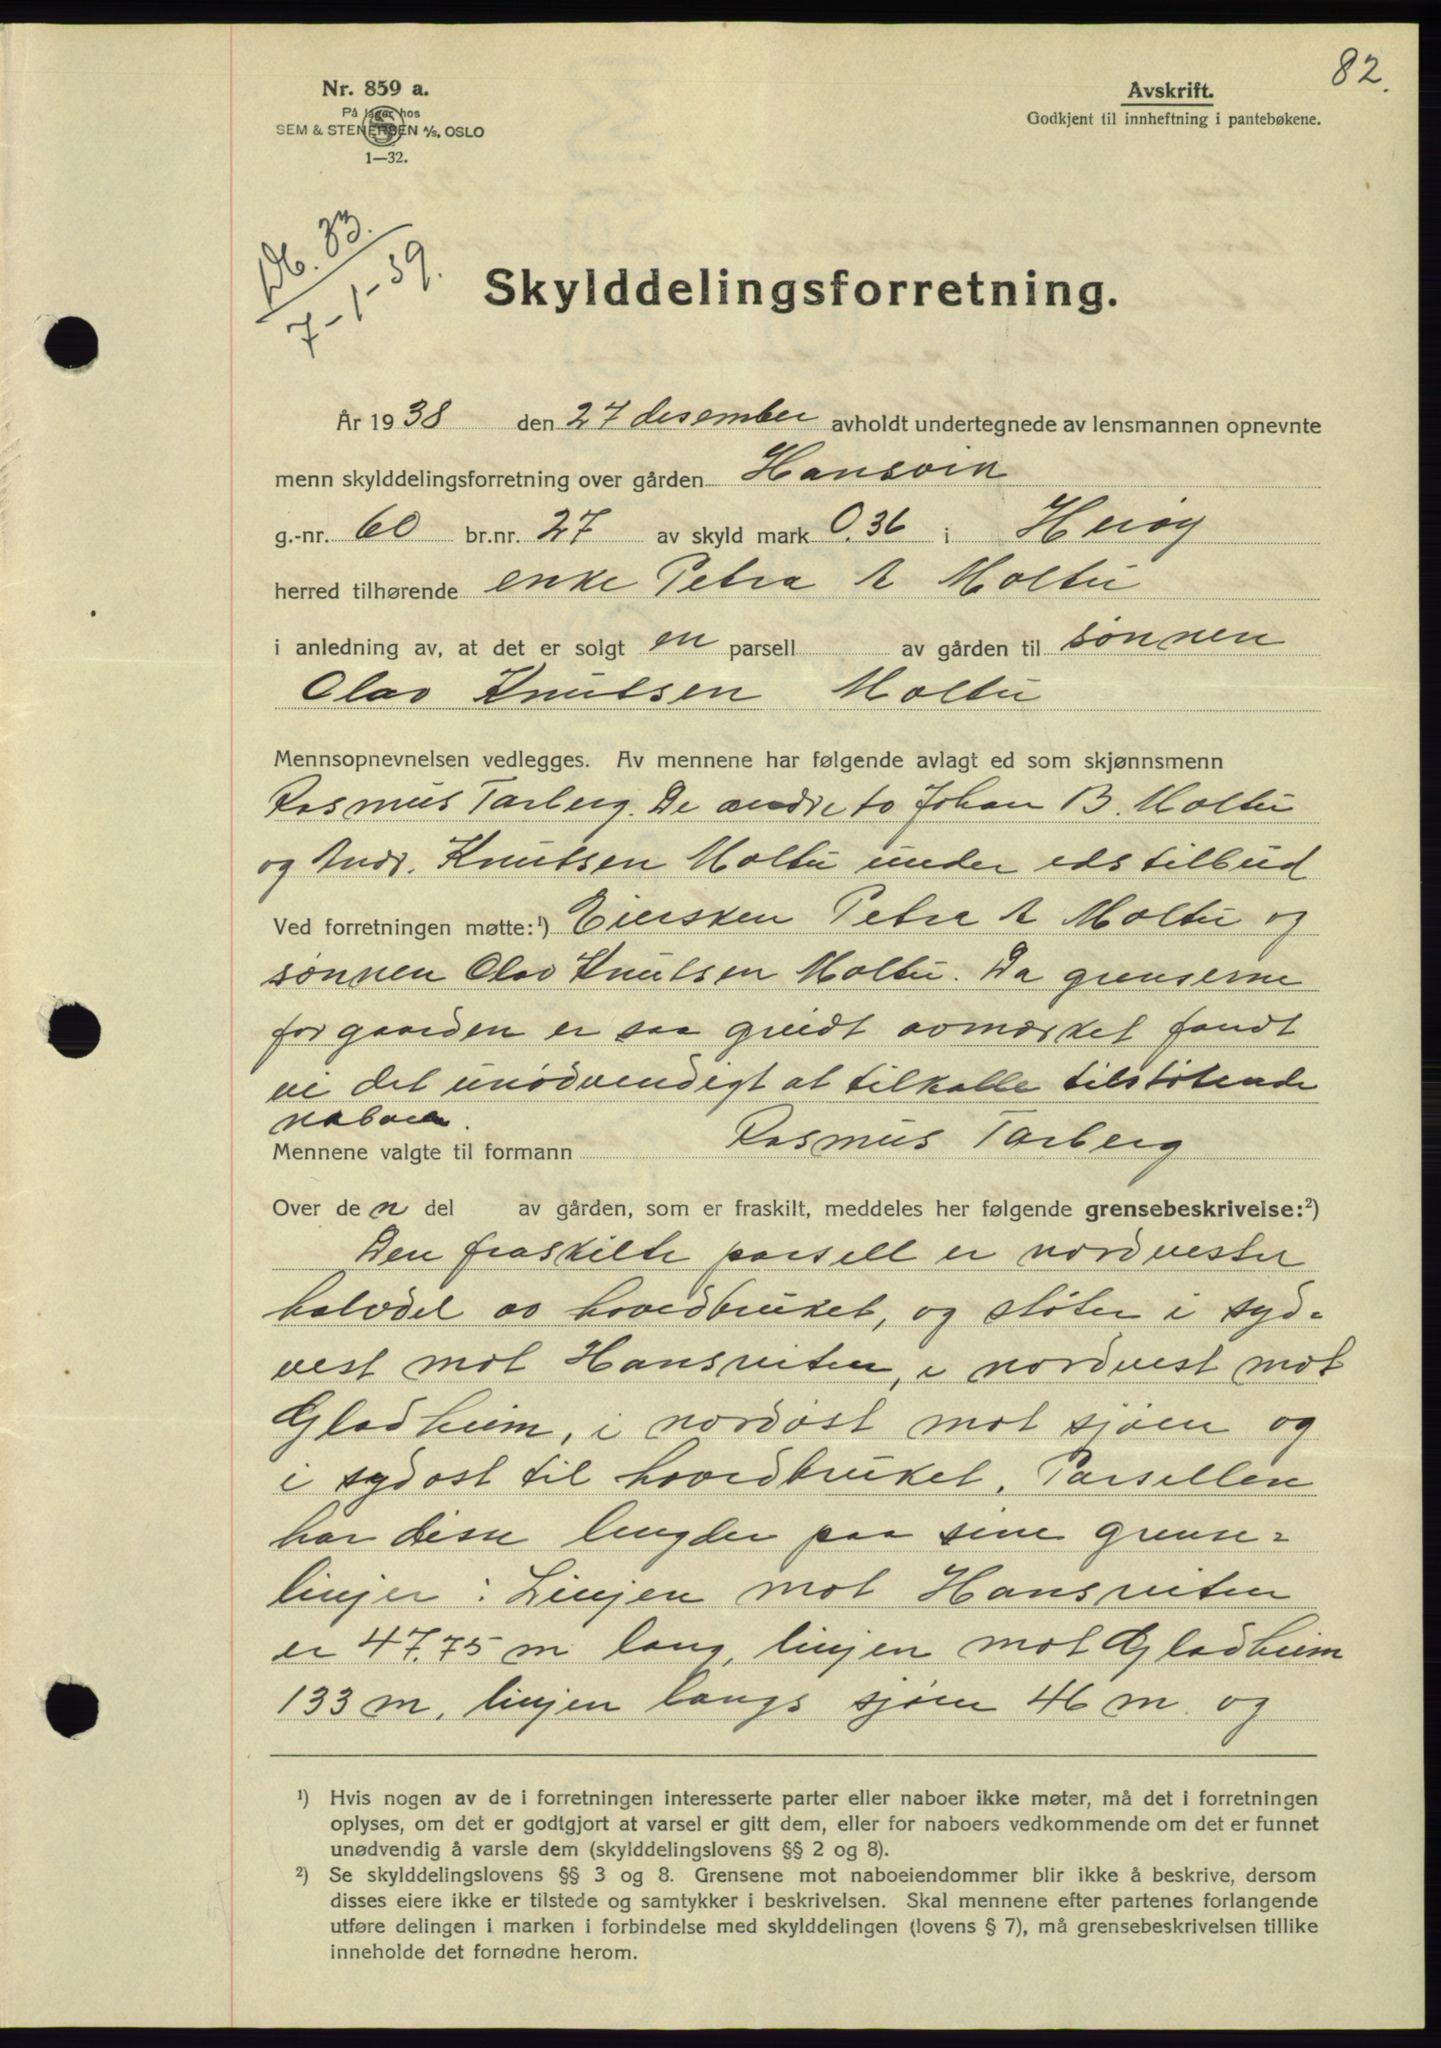 82.
Nr. 859 a.
På lager hos
SEM & STENERSEN A/S, OSLO
1—32.
Avskrift.
Godkjent til innheftning i pantebøkene.
Db. 33.
7-1-39.
Skylddelingsforretning.
År 1938 den 27 desember avholdt undertegnede av lensmannen opnevnte
menn skylddelingsforretning over gården Hansvik
g.-nr. 60 br.nr. 27 av skyld mark 0.36 i Herøy
herred tilhørende enke Petra A Moltu
i anledning av, at det er solgt en parsell av gården til sønnen
Olav Knutsen Moltu
Mennsopnevnelsen vedlegges. Av mennene har følgende avlagt ed som skjønnsmenn
Rasmus Tarberg. De andre to Johan B. Moltu
og Andr. Knutsen Moltu under edstilbud
Ved forretningen møtte:¹) Eiersken Petra A Moltu og
sønnen Olav Knutsen Moltu. Da grenserne
for gaarden er saa greidt avmerket fandt
vi det unødvendigt at tilkalle tilstøtende
naboer.
Mennene valgte til formann Rasmus Tarberg
Over den del av gården, som er fraskilt, meddeles her følgende grensebeskrivelse:²)
Den fraskilte parsell er nordvester
halvdel av hovedbruket, og støter i syd=
vest mot Hansveiten, i nordvest mot
Gladheim, i nordøst mot sjøen og
i sydøst til hovedbruket. Parsellen
har disse lengder paa sine grense=
linjer: Linjen mot Hansveiten
er 47.75 m lang, linjen mot Gladheim
133 m, linjen langs sjøen 46 m. og
¹) Hvis nogen av de i forretningen interesserte parter eller naboer ikke møter, må det i forretningen
oplyses, om det er godtgjort at varsel er gitt dem, eller for naboers vedkommende om det er funnet
unødvendig å varsle dem (skylddelingslovens §§ 2 og 8).
²) Se skylddelingslovens §§ 3 og 8. Grensene mot naboeiendommer blir ikke å beskrive, dersom
disses eiere ikke er tilstede og samtykker i beskrivelsen. Skal mennene efter partenes forlangende
utføre delingen i marken i forbindelse med skylddelingen (lovens § 7), må grensebeskrivelsen tillike
inneholde det fornødne herom.